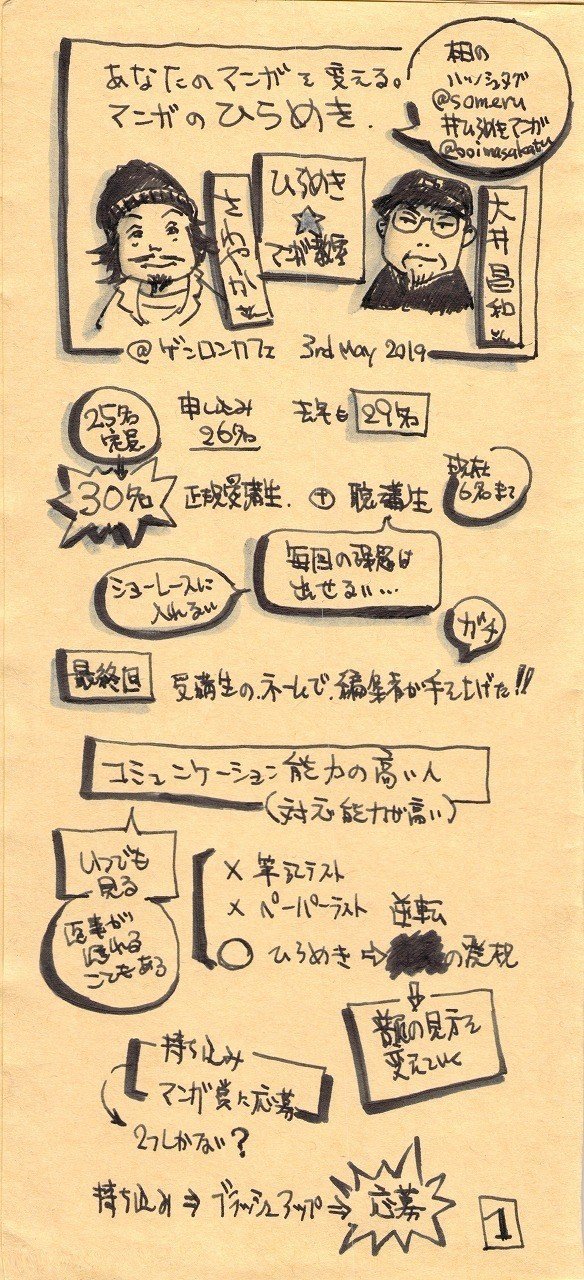 あなたのマンガを変える。
マンガのひらめき.
相の
ハッシュタグ
@someru
#ひらめきマンガ
@ooimasakazu
ひらめき
☆
マンガ教室
さわやかさん
大井昌和さん
@ゲンロンカフェ 3rd May 2019
25名
定員
申し込み
26名
29名
30名
正規受講生. ⊕ 聴講生
現在
6名まで
毎回の課題は
出せない…
ショーレースに
入れない
ガチ
最終回
受講生の.ネームで.編集者が手を上げた!!
コミュニケーション能力の高い人
(対応能力が高い)
いつでも
見る
返事が
遅れる
こともある
× 筆記テスト
× ペーパーテスト 逆転
○ ひらめき ⇨ の発想
普段の見方を
変えていく
持ち込み
マンガ賞に応募
2つしかない?
持ち込み ⇒ ブラッシュアップ ⇒ 応募
1